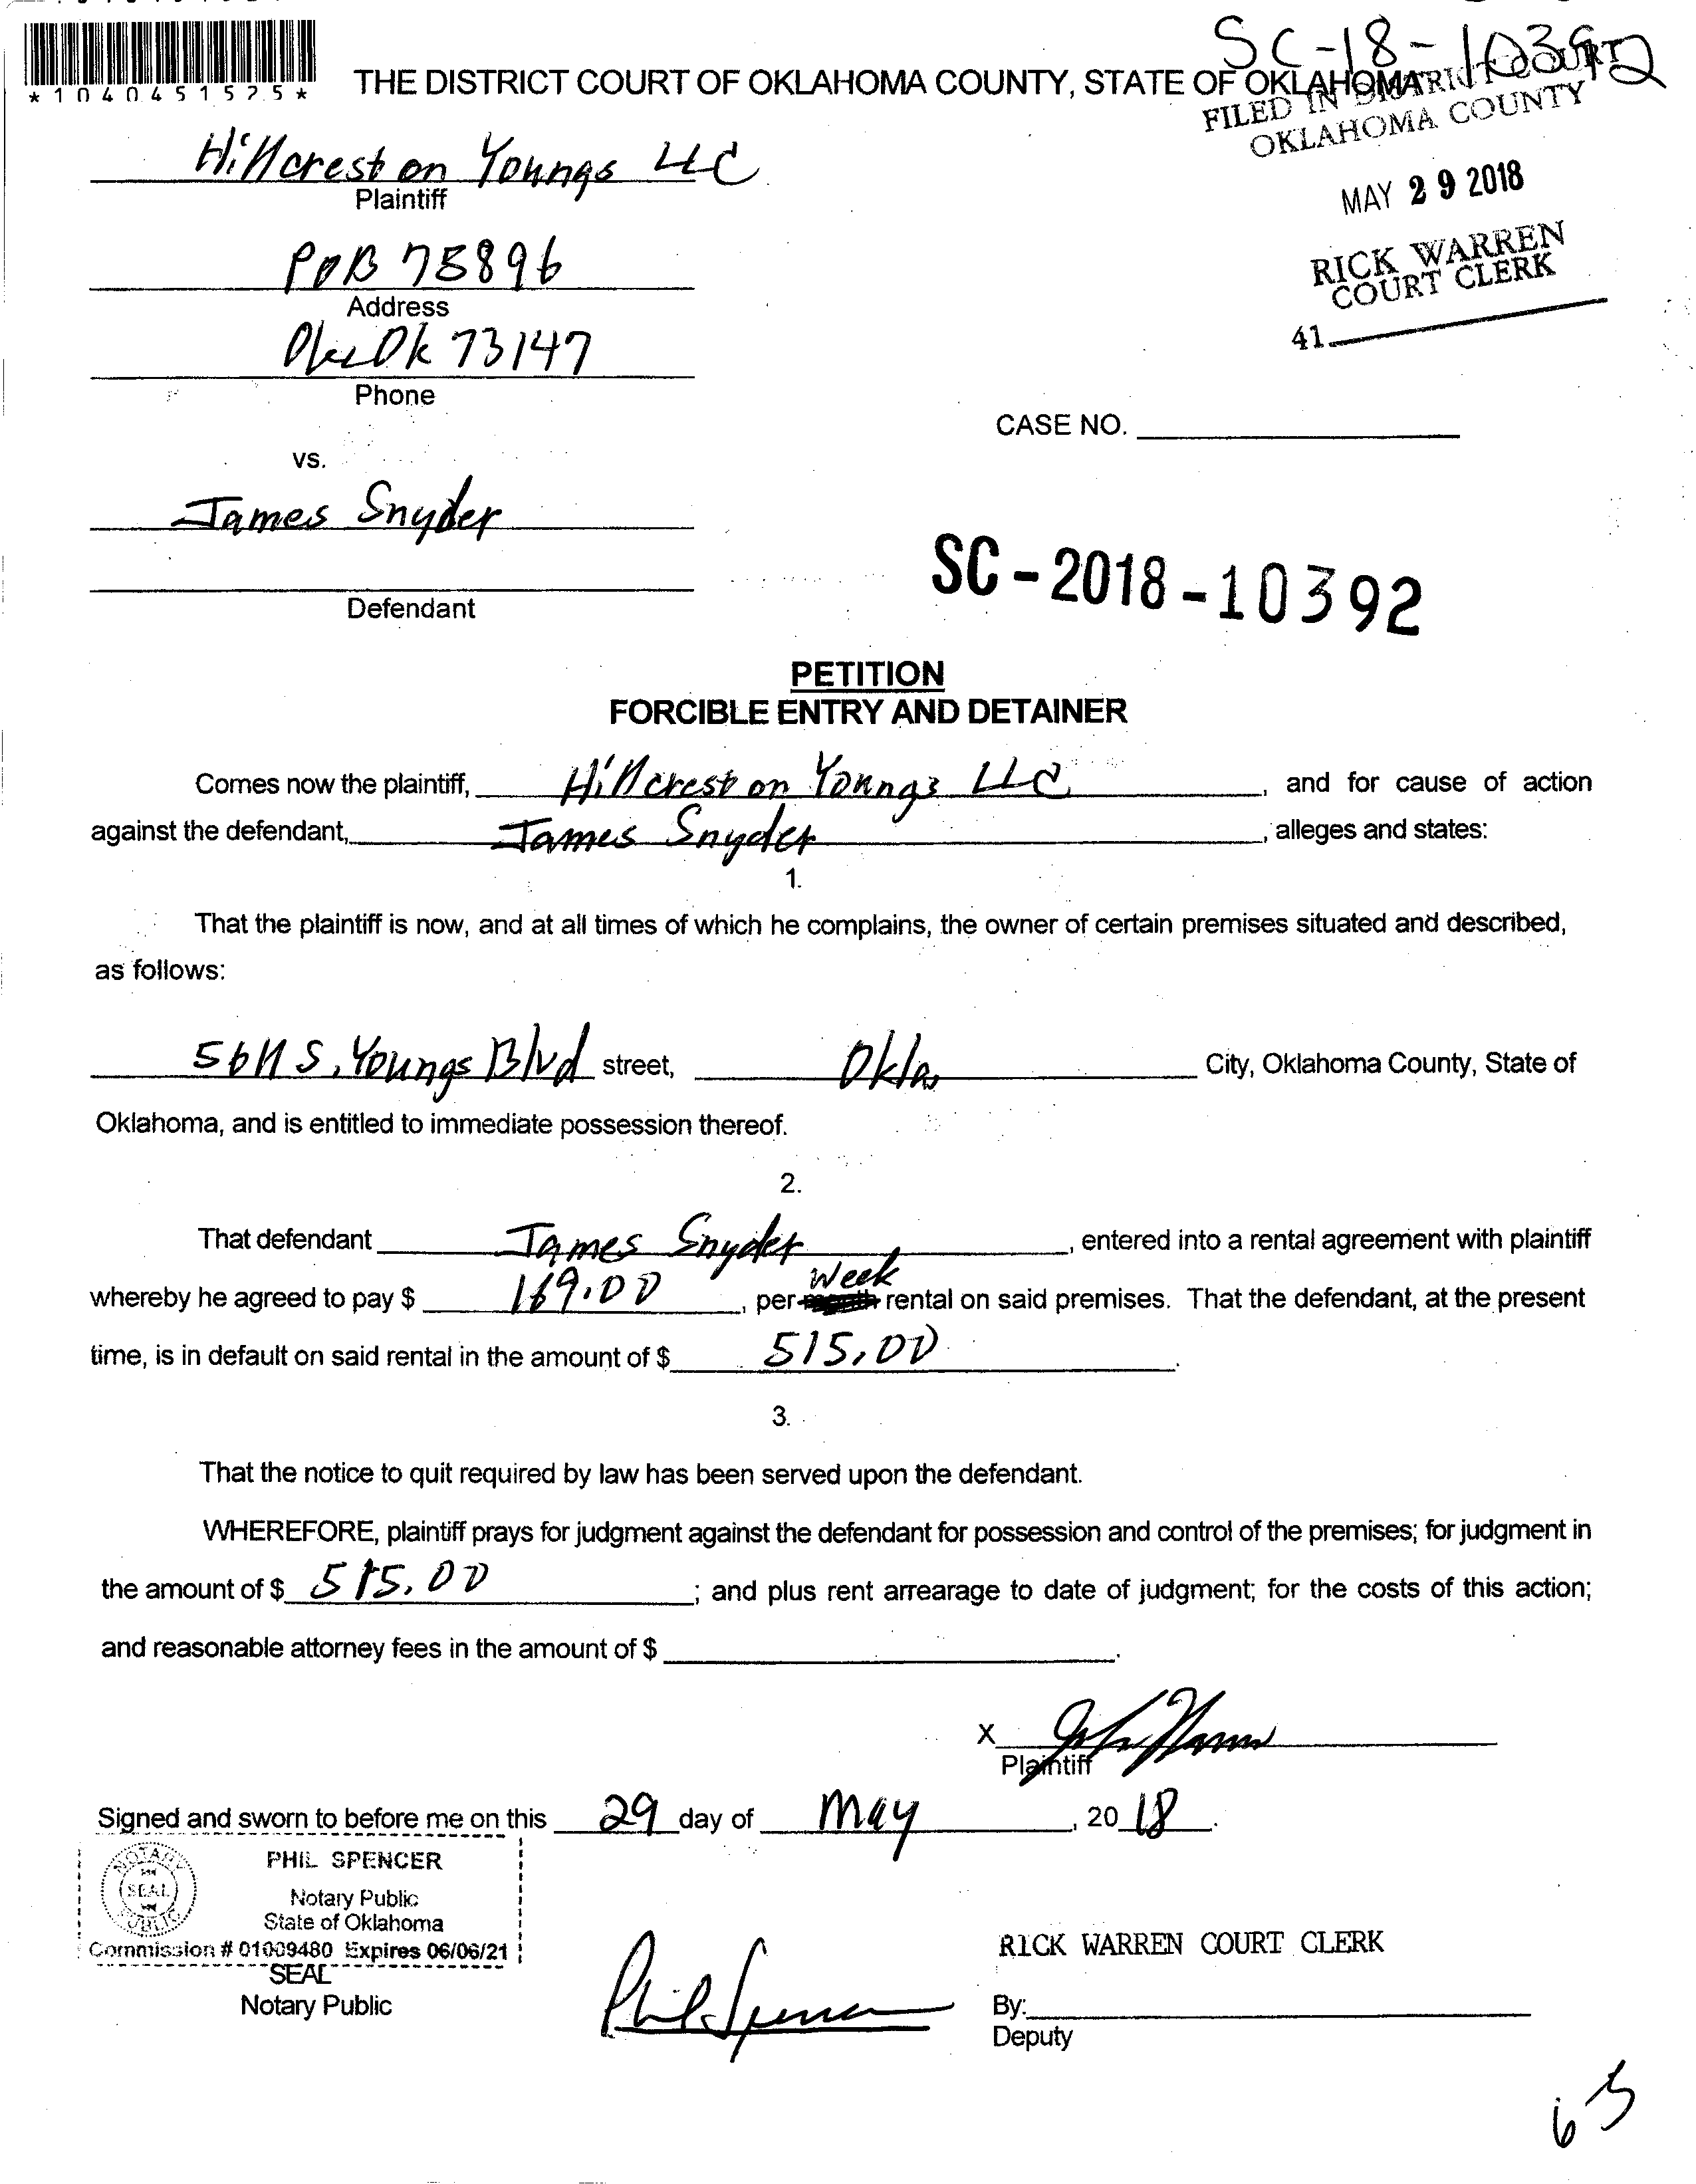 SC-18-10392
*1040451525*
THE DISTRICT COURT OF OKLAHOMA COUNTY, STATE OF OKLAHOMA
FILED IN DISTRICT COURT
OKLAHOMA COUNTY
Hillcrest on Youngs LLC
Plaintiff
MAY 29 2018
POB 75896
Address
RICK WARREN
COURT CLERK
41
Ok 73147
Phone
CASE NO.
vs.
James Snyder
Defendant
SC-2018-10392
PETITION
FORCIBLE ENTRY AND DETAINER
Comes now the plaintiff, Hillcrest on Youngs LLC, and for cause of action
against the defendant, James Snyder, alleges and states:
1.
That the plaintiff is now, and at all times of which he complains, the owner of certain premises situated and described,
as follows:
5611 S. Youngs Blvd street, Okla. City, Oklahoma County, State of
Oklahoma, and is entitled to immediate possession thereof.
2.
That defendant James Snyder, entered into a rental agreement with plaintiff
whereby he agreed to pay $ 169.00, per week rental on said premises. That the defendant, at the present
time, is in default on said rental in the amount of $ 515.00.
3.
That the notice to quit required by law has been served upon the defendant.
WHEREFORE, plaintiff prays for judgment against the defendant for possession and control of the premises; for judgment in
the amount of $ 515.00; and plus rent arrearage to date of judgment; for the costs of this action;
and reasonable attorney fees in the amount of $.
X
Plaintiff
Signed and sworn to before me on this 29 day of May, 2018.
NOTARY SEAL PUBLIC
PHIL SPENCER
Notary Public
State of Oklahoma
Commission # 01009480 Expires 06/06/21
SEAL
Notary Public
Phil Spencer
RICK WARREN COURT CLERK
By:
Deputy